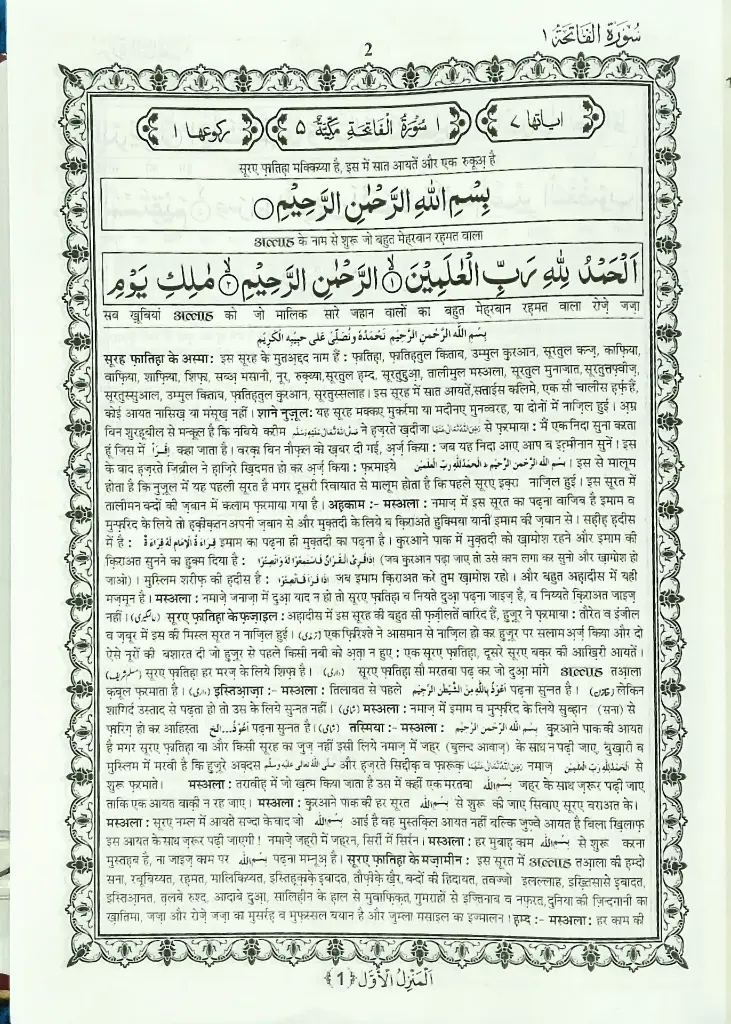 سُوْرَةُ الْفَاتِحَة ١
2
اٰیاتها ٧
١ سُوْرَةُ الْفَاتِحَةِ مَكِّيَّةٌ ٥
ركوعها ١
सूरए फ़ातिहा मक्किय्या है, इस में सात आयतें और एक रुकूअ़ है
بِسْمِ اللّٰهِ الرَّحْمٰنِ الرَّحِیْمِ
अल्लाह के नाम से शुरू जो बहुत मेहरबान रहमत वाला
اَلْحَمْدُ لِلّٰهِ رَبِّ الْعٰلَمِیْنَ ١ الرَّحْمٰنِ الرَّحِیْمِ ٢ مٰلِكِ یَوْمِ
सब ख़ूबियां अल्लाह को जो मालिक सारे जहान वालों का बहुत मेहरबान रहमत वाला रोज़े जज़ा
بِسْمِ اللّٰهِ الرَّحْمٰنِ الرَّحِيْمِ نَحْمَدُهٗ وَنُصَلِّیْ عَلٰی حَبِيْبِهِ الْكَرِيْمِ
सूरह फ़ातिहा के अस्मा : इस सूरह के मुतअ़द्दद नाम हैं : फ़ातिहा, फ़ातिह़तुल किताब, उम्मुल कुरआन, सूरतुल कन्ज़, काफ़िया,
वाफ़िया, शाफ़िया, शिफ़ा, सब्अ़ मसानी, नूर, रुक़्य्या,सूरतुल हम्द, सूरतुद्दुआ़, तालीमुल मस्अला, सूरतुल मुनाजात, सूरतुत्तफ़्वीज़,
सूरतुस्सुआल, उम्मुल किताब, फ़ातिह़तुल कुरआन, सूरतुस्सलाह। इस सूरह में सात आयतें,सत्ताईस कलिमे, एक सौ चालीस हर्फ़ हैं,
कोई आयत नासिख़ या मंसूख़ नहीं। शाने नुज़ूल: यह सूरह मक्कए मुकर्रमा या मदीनए मुनव्वरह, या दोनों में नाज़िल हुई। अ़म्र
बिन शुरह़बील से मन्क़ूल है कि नबिये करीम ने हज़रते ख़दीजा से फ़रमाया: मैं एक निदा सुना करता
हूं जिस में اِقْرَأْ कहा जाता है। वरक़ा बिन नौफ़ल को ख़बर दी गई, अ़र्ज़ किया : जब यह निदा आए आप ब इत़मीनान सुनें। इस
के बाद हज़रते जिब्रील ने हाज़िरे ख़िदमत हो कर अ़र्ज़ किया : फ़रमाइये بسم اللہ الرحمن الرحیم ۔ الحمد للہ رب العلمین । इस से मालूम
होता है कि नुज़ूल में यह पहली सूरत है मगर दूसरी रिवायात से मालूम होता है कि पहले सूरए इक़रा नाज़िल हुई। इस सूरत में
तालीमन बन्दों की ज़बान में कलाम फ़रमाया गया है। अहकाम :- मस्अला : नमाज़ में इस सूरत का पढ़ना वाजिब है इमाम व
मुन्फ़रिद के लिये तो ह़क़ीक़तन अपनी ज़बान से और मुक़्तदी के लिये ब क़िराअते हुक्मिया यानी इमाम की ज़बान से। सह़ीह़ ह़दीस
में है : قِرَاءَةُ الْاِمَامِ لَهٗ قِرَاءَةٌ इमाम का पढ़ना ही मुक़्तदी का पढ़ना है। कुरआने पाक में मुक़्तदी को ख़ामोश रहने और इमाम की
क़िराअत सुनने का हुक्म दिया है : (जब कुरआन पढ़ा जाए तो उसे कान लगा कर सुनो और ख़ामोश हो
जाओ)। मुस्लिम शरीफ़ की ह़दीस है : जब इमाम क़िराअत करे तुम ख़ामोश रहो। और बहुत अह़ादीस में यही
मज़्मून है। मस्अला : नमाज़े जनाज़ा में दुआ़ याद न हो तो सूरए फ़ातिहा ब निय्यते दुआ़ पढ़ना जाइज़ है, ब निय्यते क़िराअत जाइज़
नहीं। सूरए फ़ातिहा के फ़ज़ाइल : अह़ादीस में इस सूरह की बहुत सी फ़ज़ीलतें वारिद हैं, हुज़ूर ने फ़रमाया : तौरेत व इंजील
व ज़बूर में इस की मिस्ल सूरत न नाज़िल हुई। एक फ़िरिश्ते ने आसमान से नाज़िल हो कर हुज़ूर पर सलाम अ़र्ज़ किया और दो
ऐसे नूरों की बशारत दी जो हुज़ूर से पहले किसी नबी को अ़ता न हुए : एक सूरए फ़ातिहा, दूसरे सूरए बक़र की आख़िरी आयतें।
सूरए फ़ातिहा हर मरज़ के लिये शिफ़ा है। सूरए फ़ातिहा सौ मरतबा पढ़ कर जो दुआ़ मांगे अल्लाह तआ़ला
क़बूल फ़रमाता है। इस्तिआ़ज़ा :- मस्अला : तिलावत से पहले اَعُوْذُ بِاللّٰهِ مِنَ الشَّیْطٰنِ الرَّجِیْمِ पढ़ना सुन्नत है। लेकिन
शागिर्द उस्ताद से पढ़ता हो तो उस के लिये सुन्नत नहीं। मस्अला : नमाज़ में इमाम व मुन्फ़रिद के लिये सुब्हान (सना) से
फ़ारिग़ हो कर आहिस्ता اَعُوْذُ...الخ पढ़ना सुन्नत है। तस्मिया :- मस्अला : بسم اللہ الرحمن الرحیم कुरआने पाक की आयत
है मगर सूरए फ़ातिहा या और किसी सूरह का जुज़ नहीं इसी लिये नमाज़ में जहर (बुलन्द आवाज़) के साथ न पढ़ी जाए, बुख़ारी व
मुस्लिम में मरवी है कि हुज़ूरे अक़्दस और हज़रते सिद्दीक़ व फ़ारूक़ नमाज़ الحمد للہ رب العلمین से
शुरू फ़रमाते। मस्अला : तरावीह़ में जो ख़त्म किया जाता है उस में कहीं एक मरतबा بسم اللہ जहर के साथ ज़रूर पढ़ी जाए
ताकि एक आयत बाक़ी न रह जाए। मस्अला : कुरआने पाक की हर सूरत بسم اللہ से शुरू की जाए सिवाए सूरए बराअत के।
मस्अला : सूरए नम्ल में आयते सज्दा के बाद जो بسم اللہ आई है वह मुस्तक़िल आयत नहीं बल्कि जुज़्वे आयत है बिला ख़िलाफ़
इस आयत के साथ ज़रूर पढ़ी जाएगी! नमाज़े जहरी में जहरन, सिर्री में सिर्रन। मस्अला : हर मुबाह़ काम بسم اللہ से शुरू करना
मुस्तह़ब है, ना जाइज़ काम पर بسم اللہ पढ़ना मम्नूअ़ है। सूरए फ़ातिहा के मज़ामीन : इस सूरत में अल्लाह तआ़ला की हम्दो
सना, रबूबिय्यत, रह़मत, मालिकिय्यत, इस्तिह़क़ाक़े इबादत, तौफ़ीक़े ख़ैर, बन्दों की हिदायत, तवज्जोह इलल्लाह, इख़्तिसासे इबादत,
इस्तिआ़नत, त़लबे रुश्द, आदाबे दुआ़, सालिह़ीन के ह़ाल से मुवाफ़िक़त, गुमराहों से इज्तिनाब व नफ़रत,दुनिया की ज़िन्दगानी का
ख़ातिमा, जज़ा और रोज़े जज़ा का मुसर्रह व मुफ़स्सल बयान है और जुम्ला मसाइल का इज्मालन। हम्द :- मस्अला : हर काम की
اَلْمَنْزِلُ الْاَوَّل ﴿1﴾